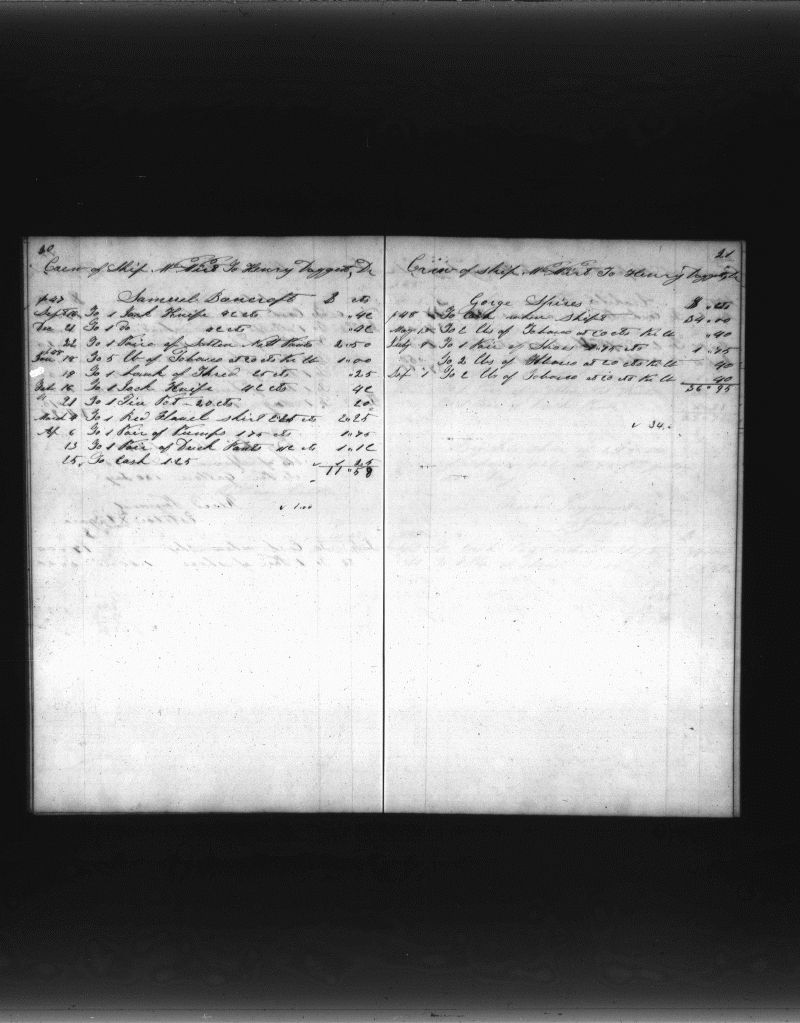 20
Crew of Ship Wm Thit To Henry Daggett, Dr
1847 Samuel Bancroft $ cts
Sept 14 To 1 Jack Knife 42 cts .42
Dec 21 To 1 Do 42 cts .42
22 To 1 Paire of Pants 2.50
18 To 5 lb of Tobacco at 20 cts Per lb 1.00
18 To 1 of Thred 25 cts .25
Feb 16 To 1 Jack Knife 42 cts 42
" 21 To 1 Tin Pot - 20 cts 20
March To 1 Red Flanel Shirt 2.25 cts 2.25
Ap. 6 To 1 Pair of Pumps 175 cts 1.75
13 To 1 Pair of Duck Pants cts 1.12
25 To Cash 1.25 1.25
11.58
1.00
21
Crew of Ship Wm Thit To Henry Daggett, Dr
Gorge Spires $ cts
1848 To Cash when Ship'd 34.00
May To 2 lbs of Tobacco at 20 cts Per lb .40
July To 1 Pair of Shoes 1.75 cts 1.75
To 2 lbs of Tobacco at 20 cts Per lb 40
1 To 2 lbs of Tobacco at 20 cts Per lb 40
36.95
34.